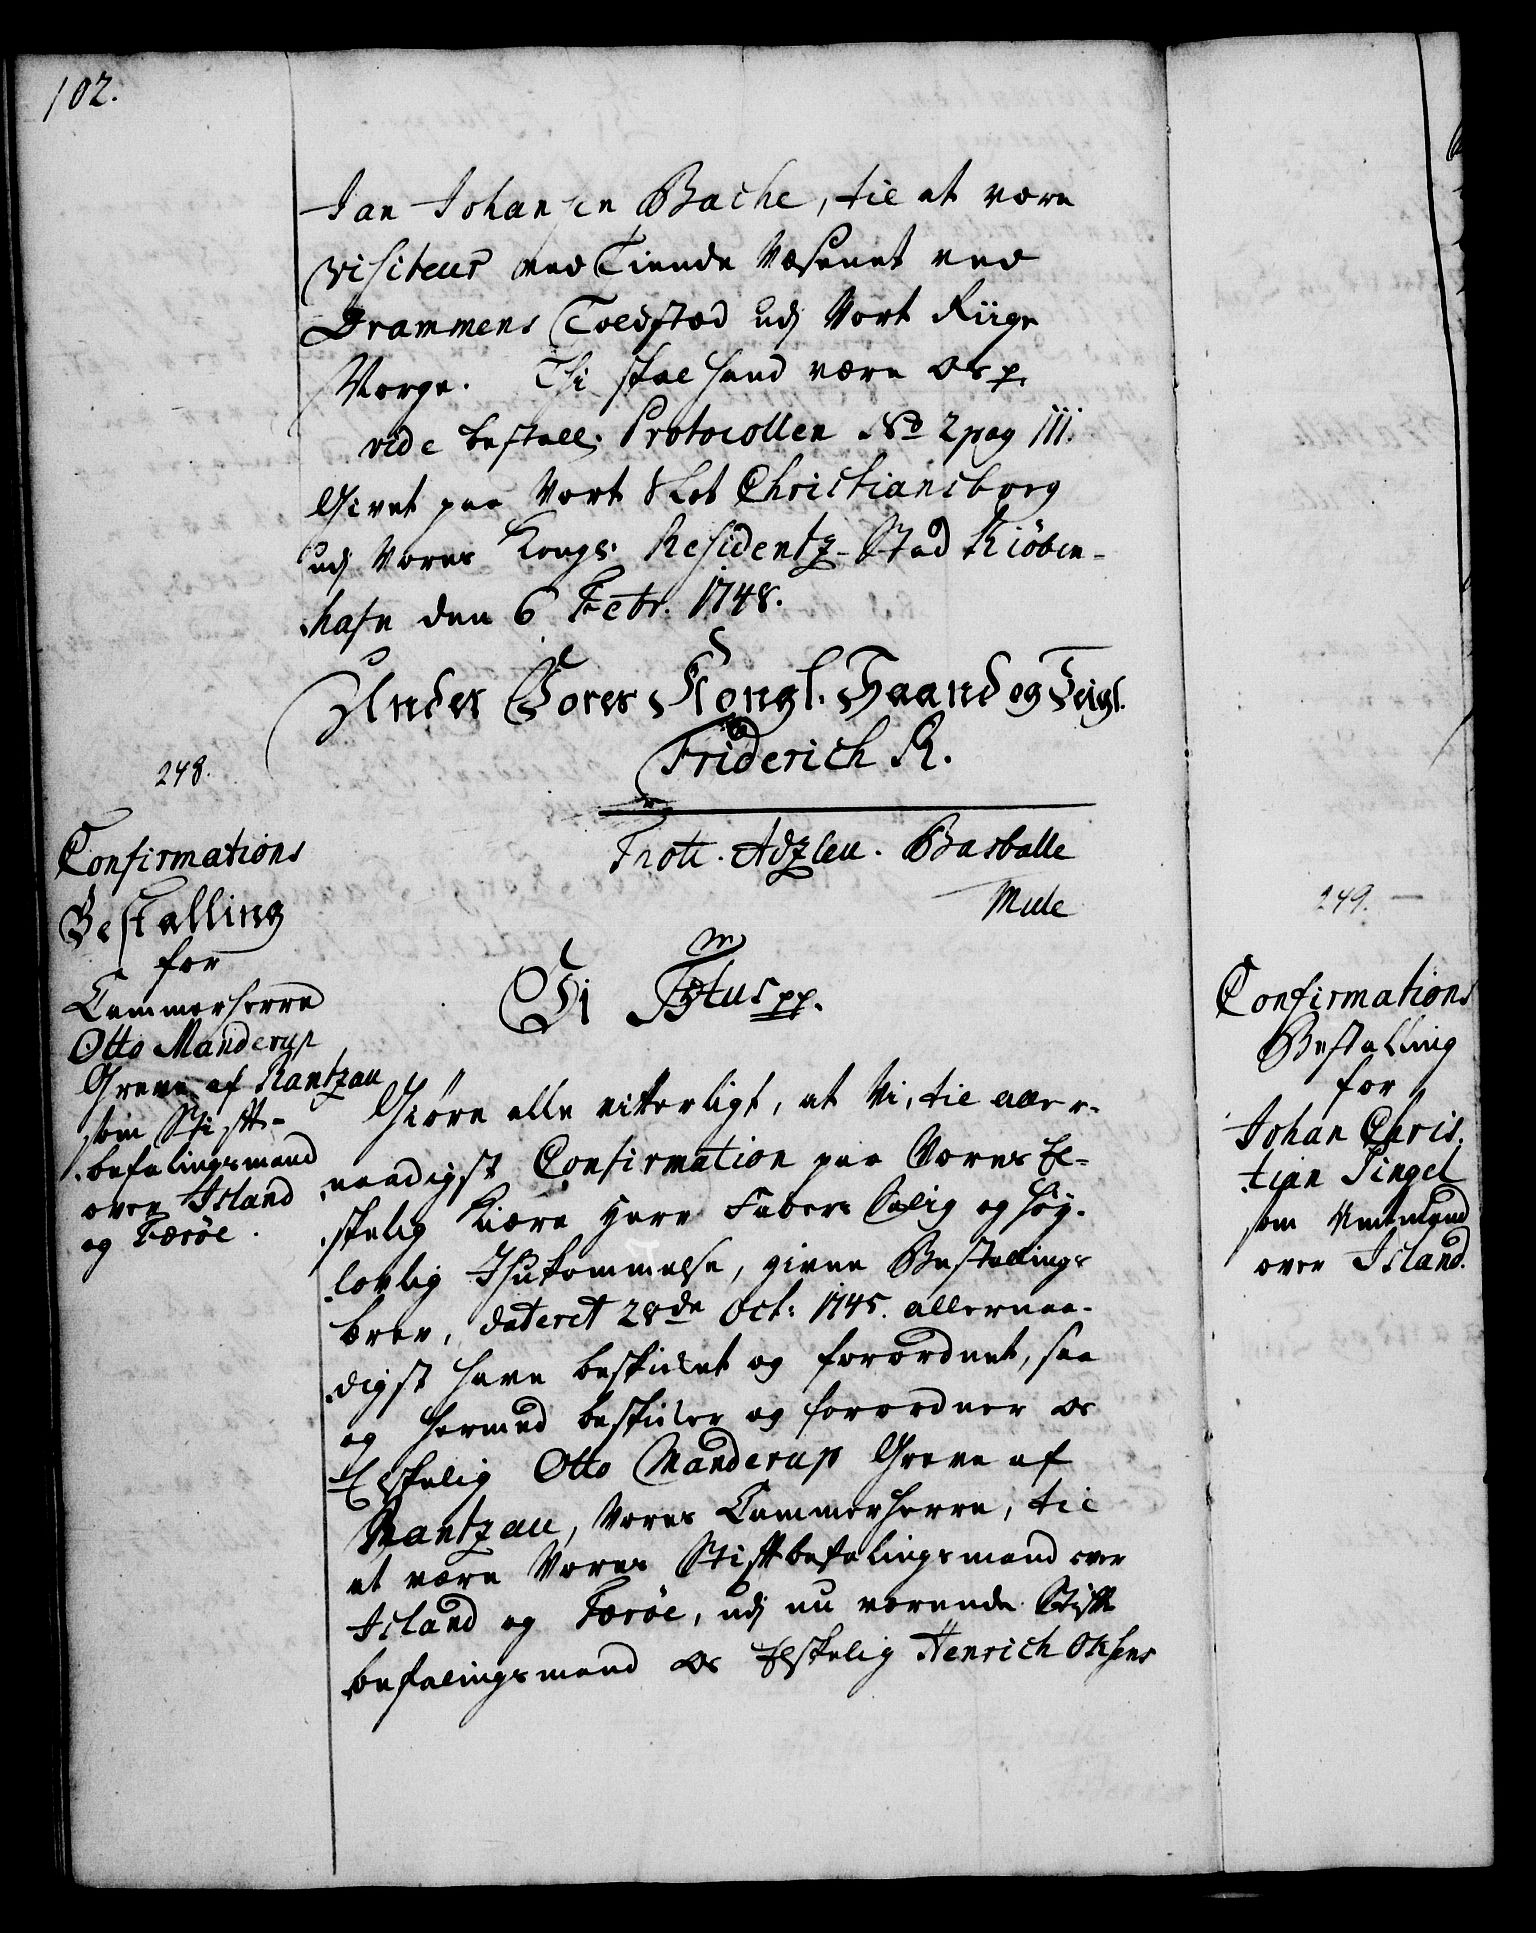 102.
Jan Johansen Bache, til at være
Visiteur ved Tiende Væsenet ved
Drammens Toldstæd udj Vort Riige
Norge. Thi skal hand være Os p.
vide bestall: Protocollen No 2 pag 111.
Givet paa Vort Slot Christiansborg
udj Vores Kongl: Residentz-Stad Kiöben-
hafn den 6 Febr. 1748.
Under Vores Kongl. Haand og Seigl.
Friderich R.
Basballe
Mule
248.
Confirmations
Bestalling
for
Cammerherre
Otto Manderup
Greve af Rantzau
som Stift-
befalingsmand
over Island
og Færöe.
Vi Ftus pp.
Giöre alle vitterligt, at Vi, til aller-
naadigst Confirmation paa Vores El-
skelig Kiære Herr Faders Salig og höy-
lovlig Ihukommelse, givne Bestallings
brev, dateret 28de Oct: 1745. allernaa-
digst have beskicket og forordnet, saa
og hermed beskicker og forordner Os
Elskelig Otto Manderup Greve af
Rantzau, Vores Cammerherre, til
at være Vores Stiftbefalingsmand over
Island og Færöe, udj nu værende Stift-
befalingsmand Os Elskelig Henrich Ochsens
249.
Confirmations
Bestalling
for
Johan Chris-
tian Pingel
som Amtmand
over Island.